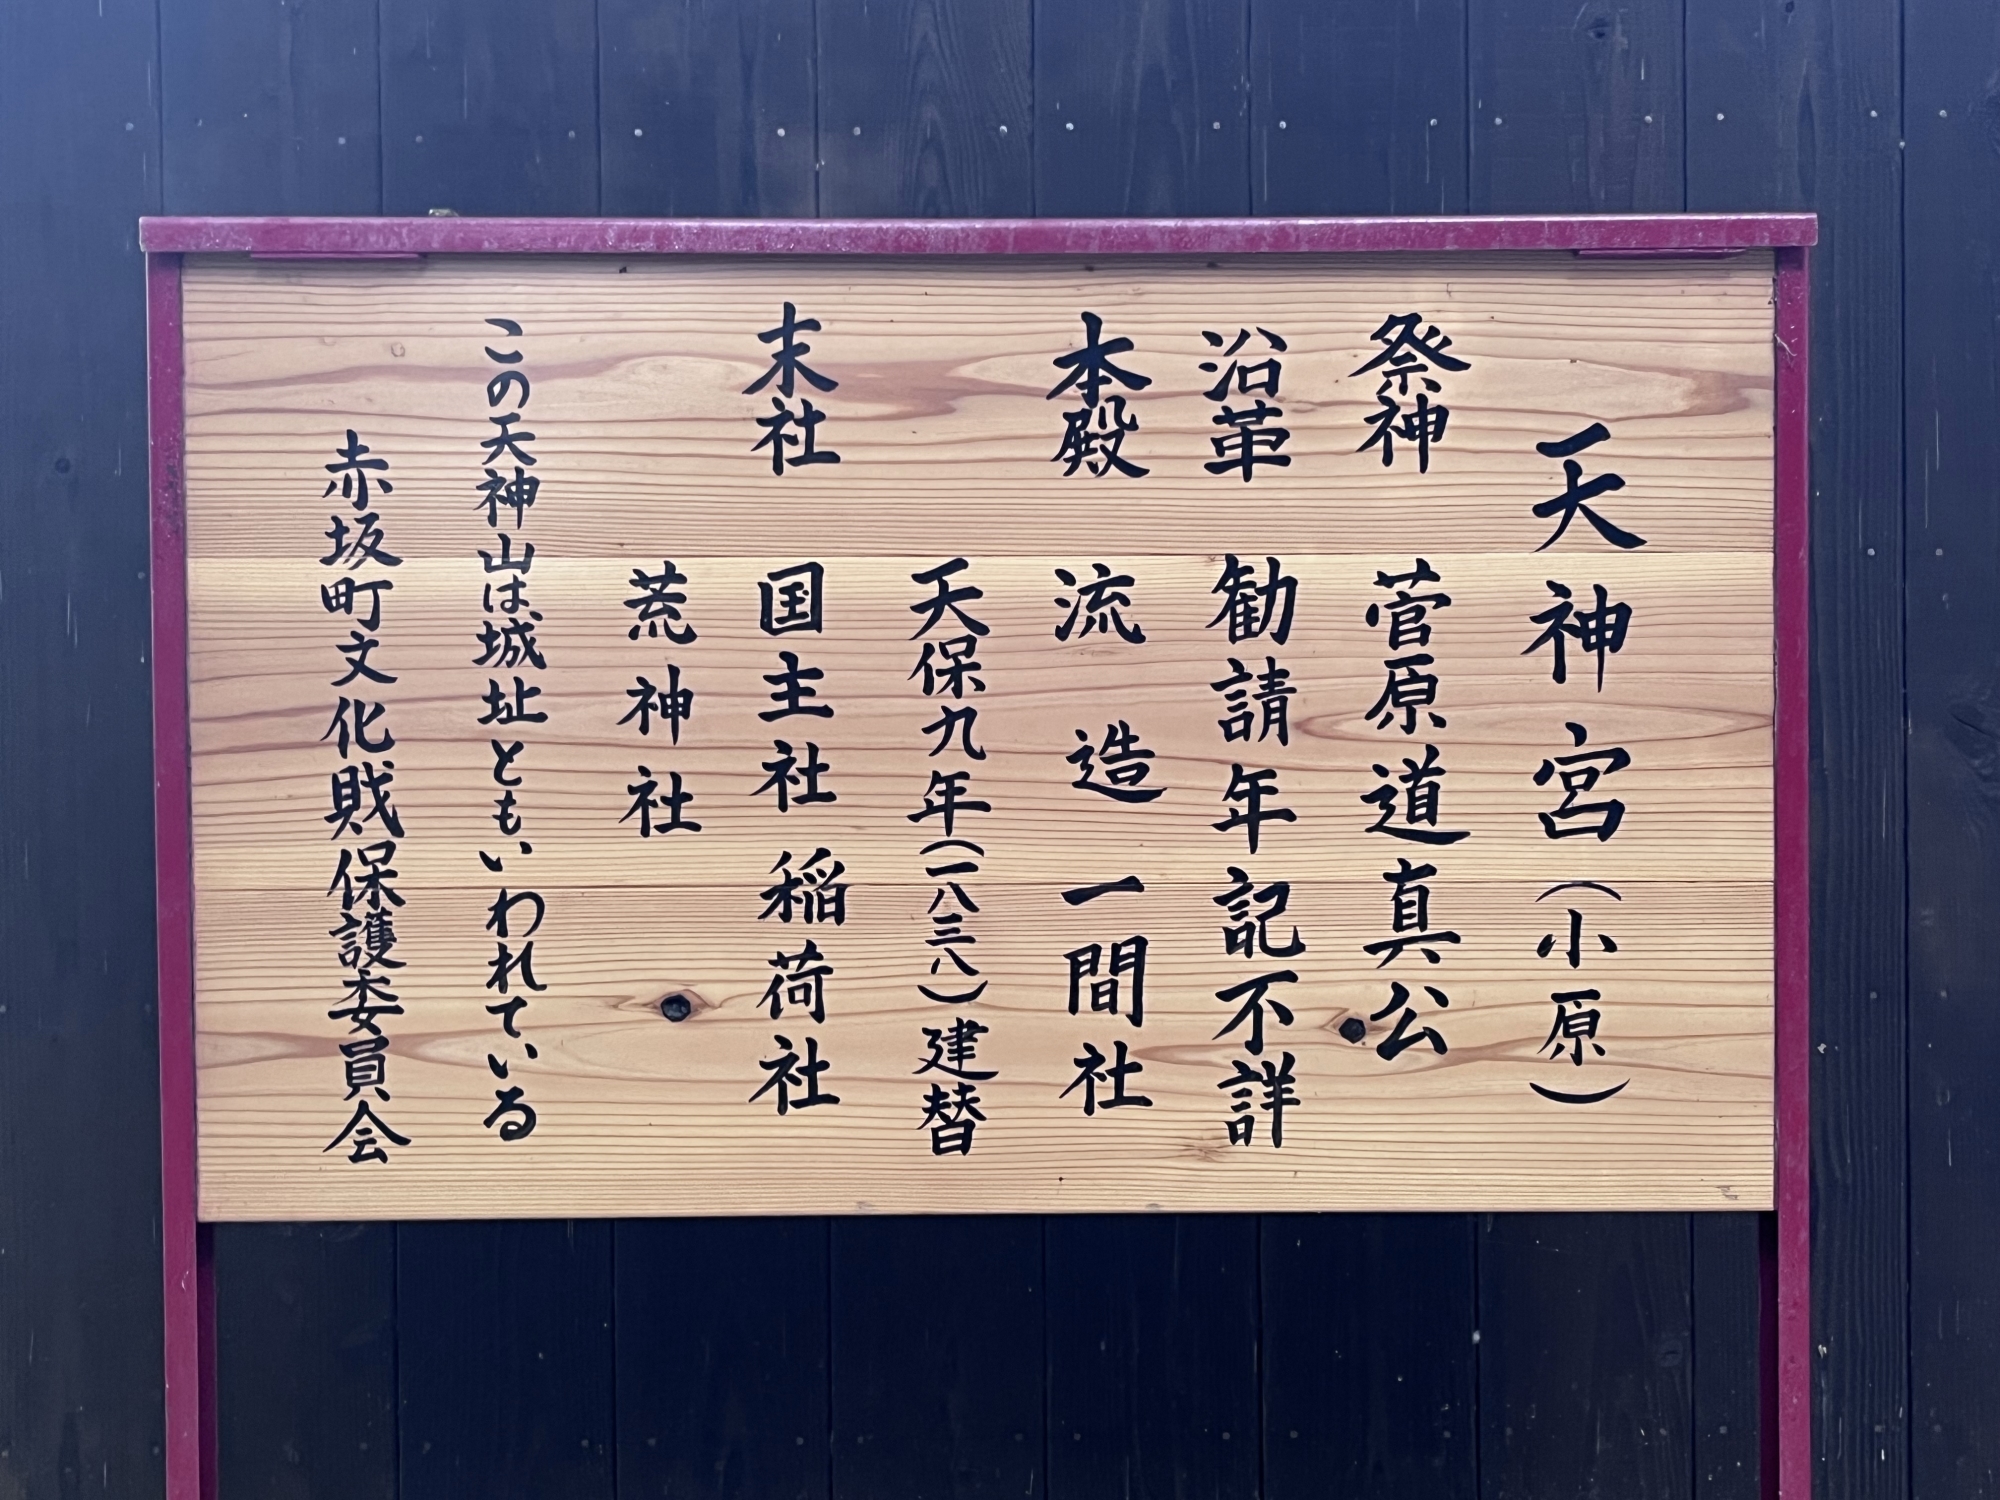 天神宮（小原）
祭神　菅原道真公
沿革　勧請年記不詳
本殿　流造一間社
天保九年（一八三八）建替
末社　国主社　稲荷社
荒神社
この天神山は城址ともいわれている
赤坂町文化財保護委員会